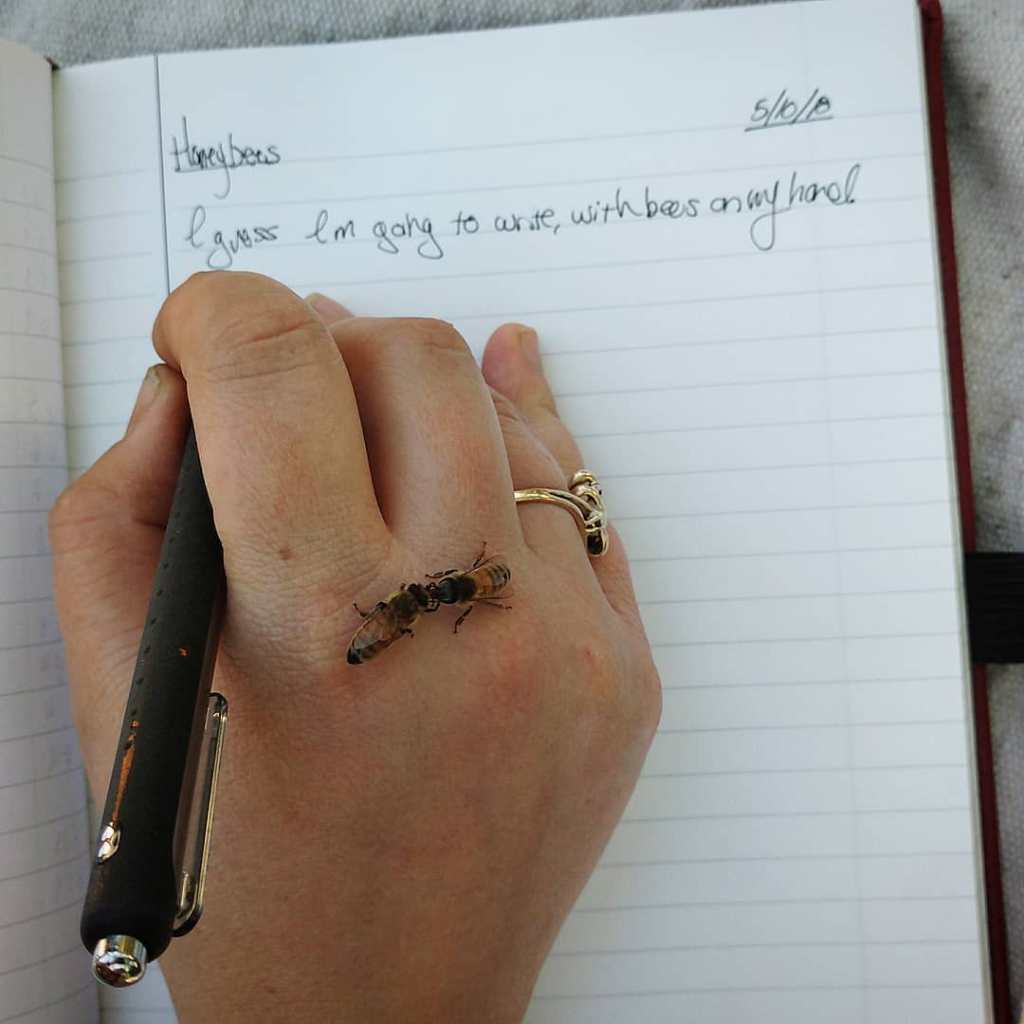 5/10/18
Honeybees
I guess Im going to write, with bees on my hand.